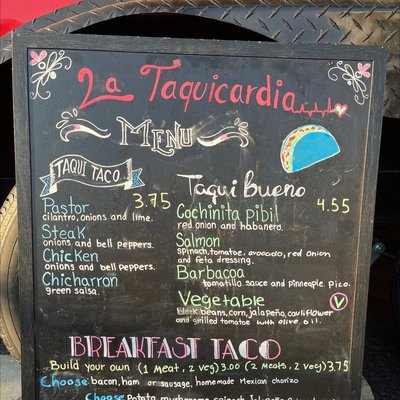 La Taquicardia
MENU
TAQUI TACO
Pastor 3.75
cilantro, onions and lime.
Steak
onions and bell peppers.
Chicken
onions and bell peppers.
Chicharron
green salsa.
Taqui bueno
Cochinita pibil 4.55
red onion and habanero.
Salmon
spinach, tomatoe, avocado, red onion
and feta dressing.
Barbacoa
tomatillo sauce and pinneaple pico.
Vegetable V
black beans, corn, jalapeño, cauliflower
and grilled tomatoe with olive oil.
BREAKFAST TACO
Build your own (1 meat, 2 veg) 3.00 (2 meats, 2 veg) 3.75
Choose bacon, ham or sausage, homemade Mexican chorizo
Choose Potato, mushrooms, spinach